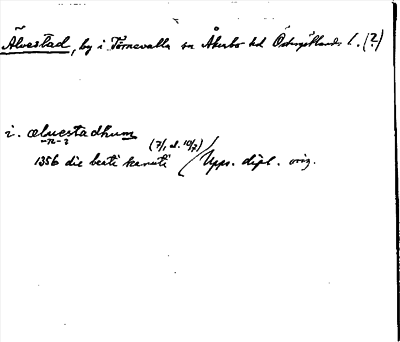 Älvestad, by i Törnevalla sn Åkerbo hd Östergötlands l. (?)
i. æluestadhum
-n-?
(7/1 el. 10/7)
1356 die beati kanuti / Upps. dipl. orig.